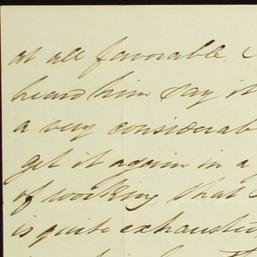 at all favorable
heard him say it
a very considerab
get it again in a
of working, that
is quite exhausted